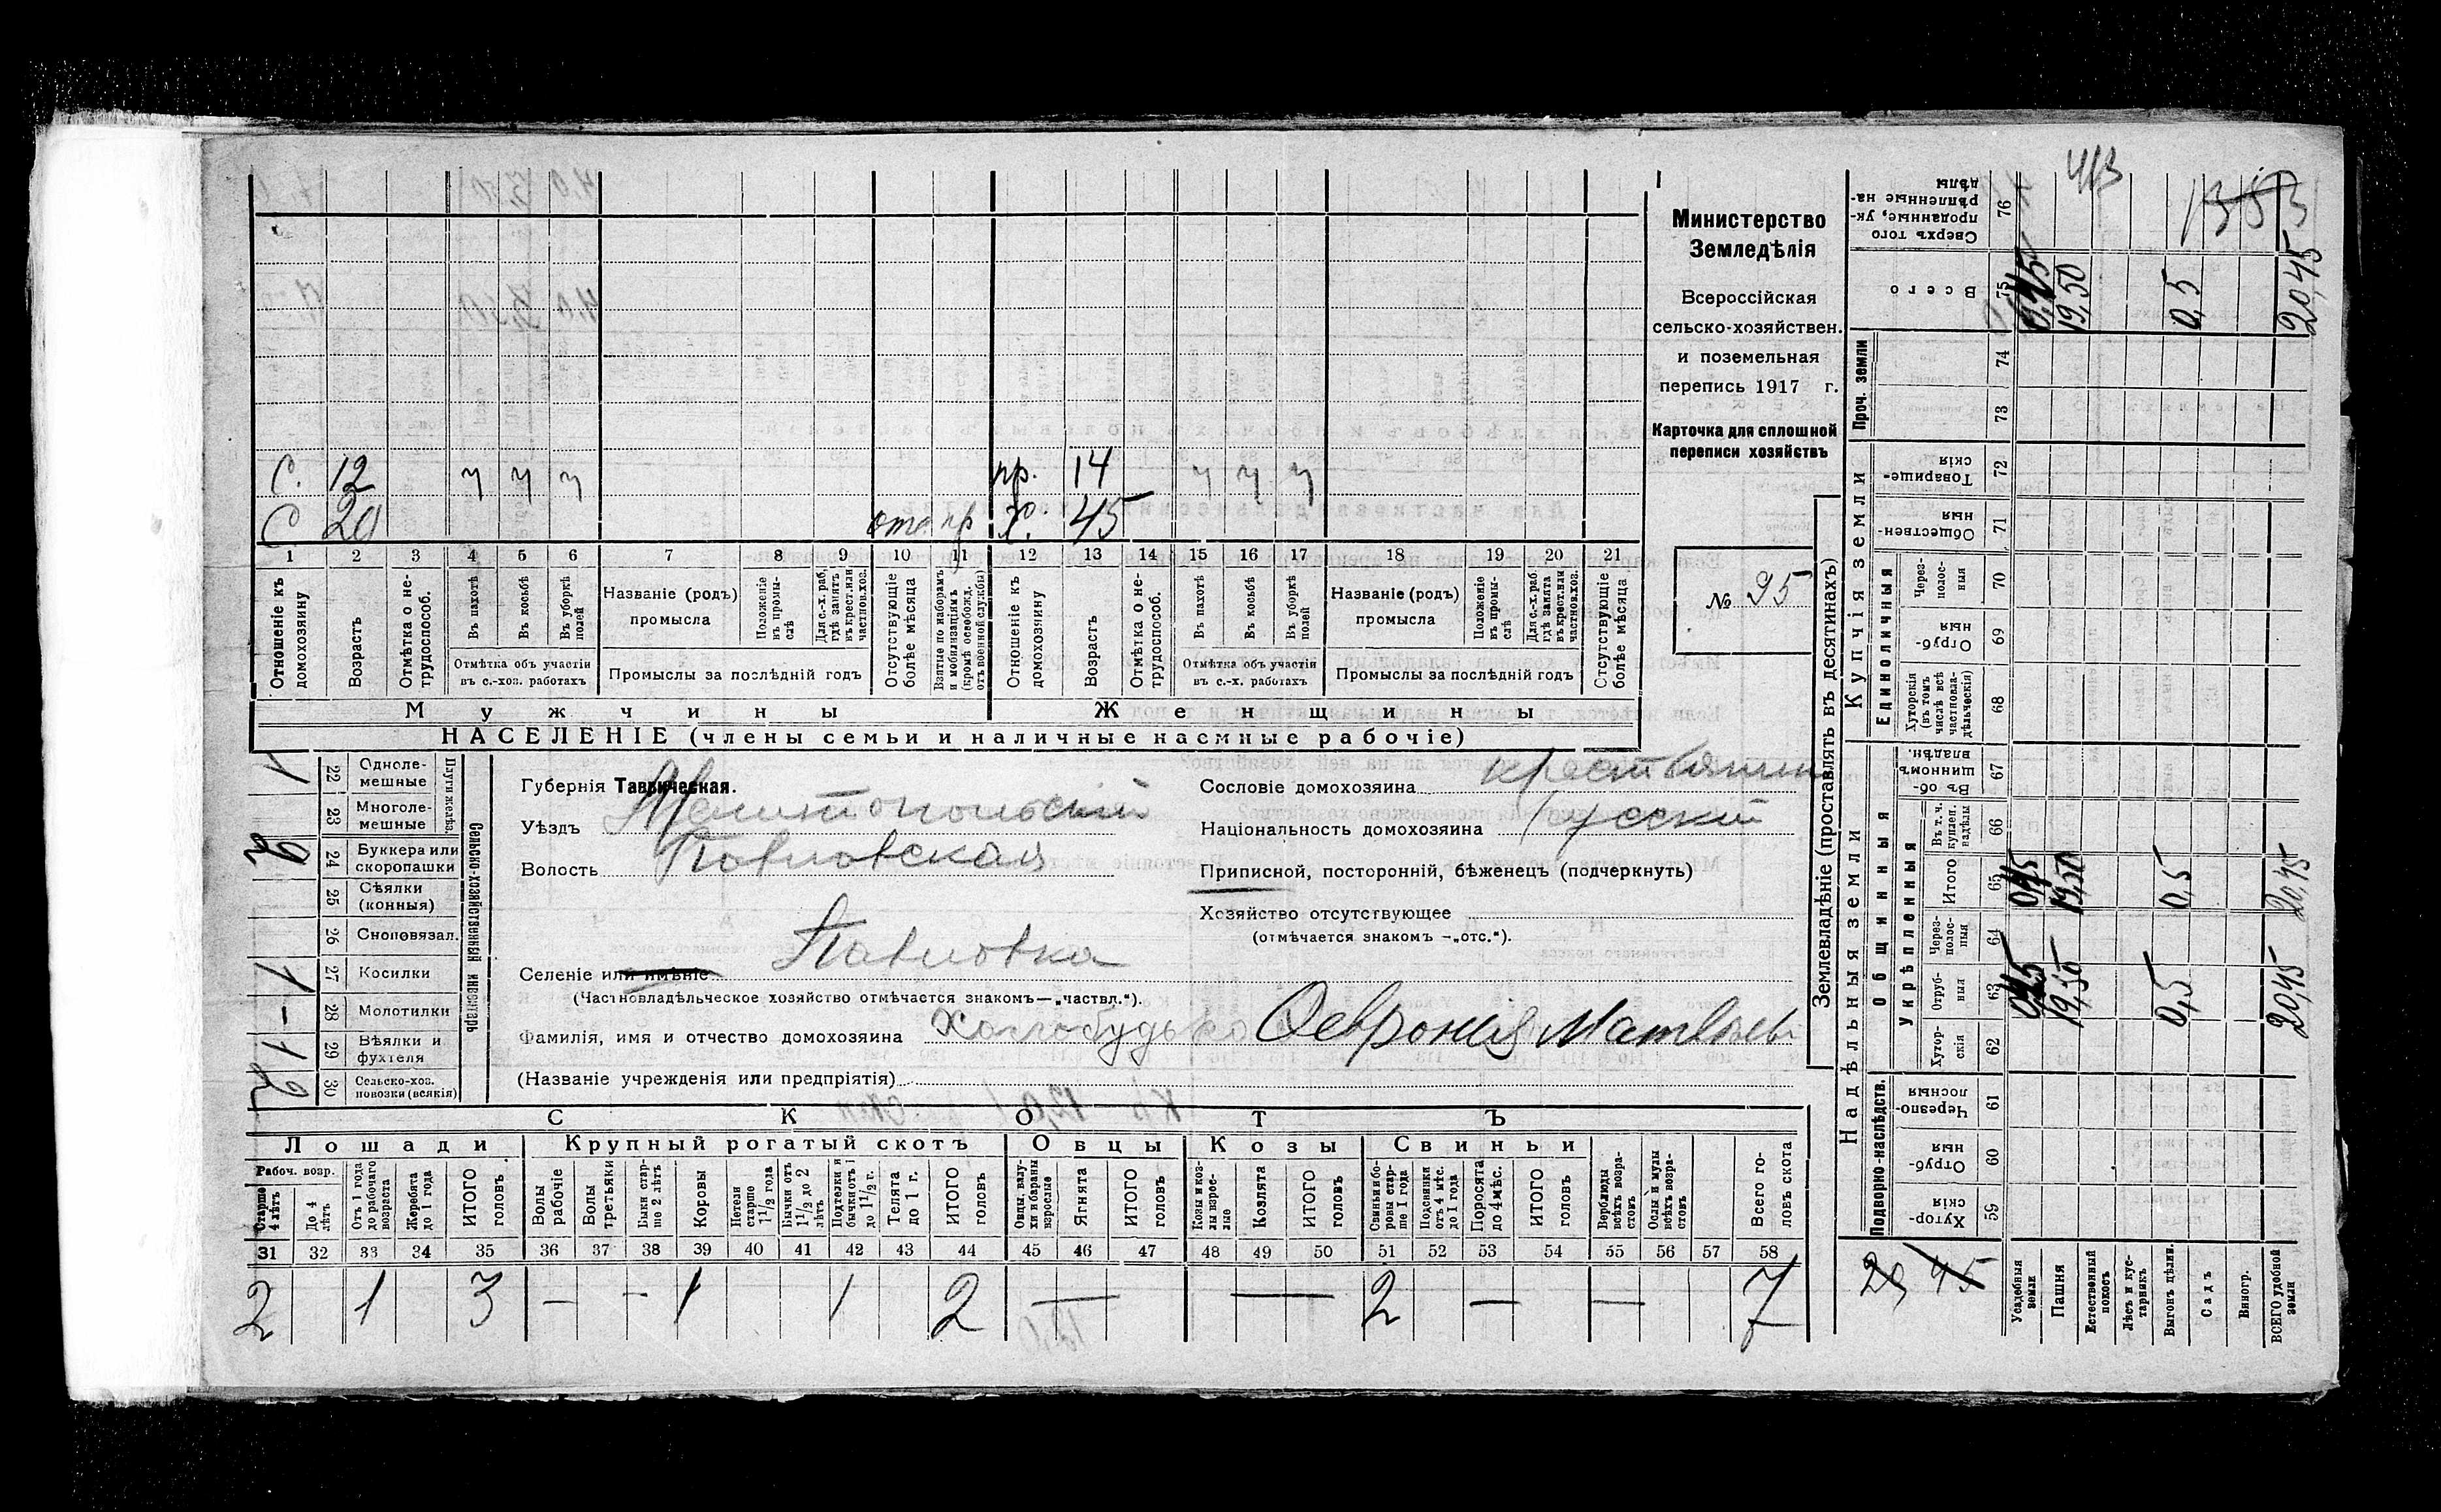 С. 12 ч ч ч пр. 14 ч ч ч
С 20 отс. пр х. 45
1 2 3 4 5 6 7 8 9 10 11 12 13 14 15 16 17 18 19 20 21
Отношеніе къ домохозяину
Возрастъ
Отмѣтка о нетрудоспособ.
Въ пахотѣ
Въ косьбѣ
Въ уборкѣ полей
Отмѣтка объ участіи
въ с.-хоз. работахъ
Названіе (родъ)
промысла
Положеніе въ промыслѣ
Для с.-х. раб. гдѣ занятъ въ крест. или частнов. хоз.
Промыслы за послѣдній годъ
Отсутствующіе болѣе мѣсяца
Взятые по наборамъ и мобилизаціямъ (кромѣ освобожд. отъ военной службы)
Отношеніе къ домохозяину
Возрастъ
Отмѣтка о нетрудоспособ.
Въ пахотѣ
Въ косьбѣ
Въ уборкѣ полей
Отмѣтка объ участіи
въ с.-х. работахъ
Названіе (родъ)
промысла
Положеніе въ промыслѣ
Для с.-х. раб. гдѣ занята въ крест. или частнов. хоз.
Промыслы за послѣдній годъ
Отсутствующіе болѣе мѣсяца
Мужчины Женщины
НАСЕЛЕНІЕ (члены семьи и наличные наемные рабочіе)
Министерство
Земледѣлія
Всероссійская
сельско-хозяйствен.
и поземельная
перепись 1917 г.
Карточка для сплошной
переписи хозяйствъ
№ 95
Сельско-хозяйственный инвентарь
Плуги желѣз.
1 22 Однолемешные
23 Многолемешные
2 24 Буккера или скоропашки
25 Сѣялки (конныя)
26 Сноповязал.
1 27 Косилки
- 28 Молотилки
1 29 Вѣялки и фухтеля
2 30 Сельско-хоз. повозки (всякія)
Губернія Таврическая.
Уѣздъ Мелитопольскій
Волость Павловская
Селеніе или имѣніе Павловка
(Частновладѣльческое хозяйство отмѣчается знакомъ—„частвл.“).
Фамилія, имя и отчество домохозяина Феврония
(Названіе учрежденія или предпріятія)
Сословіе домохозяина крестьянин
Національность домохозяина русский
Приписной, посторонній, бѣженецъ (подчеркнуть)
Хозяйство отсутствующее
(отмѣчается знакомъ —„отс.“).
СКОТЪ
Лошади Крупный рогатый скотъ Овцы Козы Свиньи
Рабоч. возр.
Старше 4 лѣтъ
До 4 лѣтъ
Отъ 1 года до рабочаго возраста
Жеребята до 1 года
ИТОГО головъ
Волы рабочіе
Волы третьяки
Быки старше 2 лѣтъ
Коровы
Нетели старше 1 1/2 года
Бычки отъ 1 1/2 до 2 лѣтъ
Подтелки и бычки отъ 1 до 1 1/2 г.
Телята до 1 г.
ИТОГО головъ
Овцы, валухи и бараны взрослые
Ягнята
ИТОГО головъ
Козы и козлы взрослые
Козлята
ИТОГО головъ
Свиньи боровы старше 1 года
Подсвинки отъ 4 мѣс. до 1 года
Поросята до 4 мѣс.
ИТОГО головъ
Верблюды всѣхъ возрастовъ
Ослы и мулы всѣхъ возрастовъ
Всего головъ скота
31 32 33 34 35 36 37 38 39 40 41 42 43 44 45 46 47 48 49 50 51 52 53 54 55 56 57 58
2 1 3 — - 1 1 2 — — 2 — — 7
Землевладѣніе (проставлять въ десятинахъ)
Надѣльныя земли
Купчія земли
Проч. земли
Подворно-наслѣдств.
Общинныя
Укрѣпленныя
Единоличныя
Сверхъ того проданные, укрѣпленные надѣлы 76 413 1353
Всего 75 0,45 19,50 0,5 20,45
74
73
Товарищескія 72
Общественныя 71
Черезполосныя 70
Отрубныя 69
Хуторскія (въ томъ числѣ всѣ частновладѣльческія) 68
Въ общинномъ владѣн. 67
Въ т. ч. куплен. надѣлы 66
Итого 65 0,45 19,50 0,5 20,45
Черезполосныя 64
Отрубныя 63 0,45 19,50 0,5 20,45
Хуторскія 62
Черезполосныя 61
Отрубныя 60
Хуторскія 59
20,45
Усадебныя земли
Пашня
Естественный покосъ
Лѣсъ и кустарникъ
Выгонъ цѣлин.
Садъ
Виногр.
ВСЕГО удобной земли